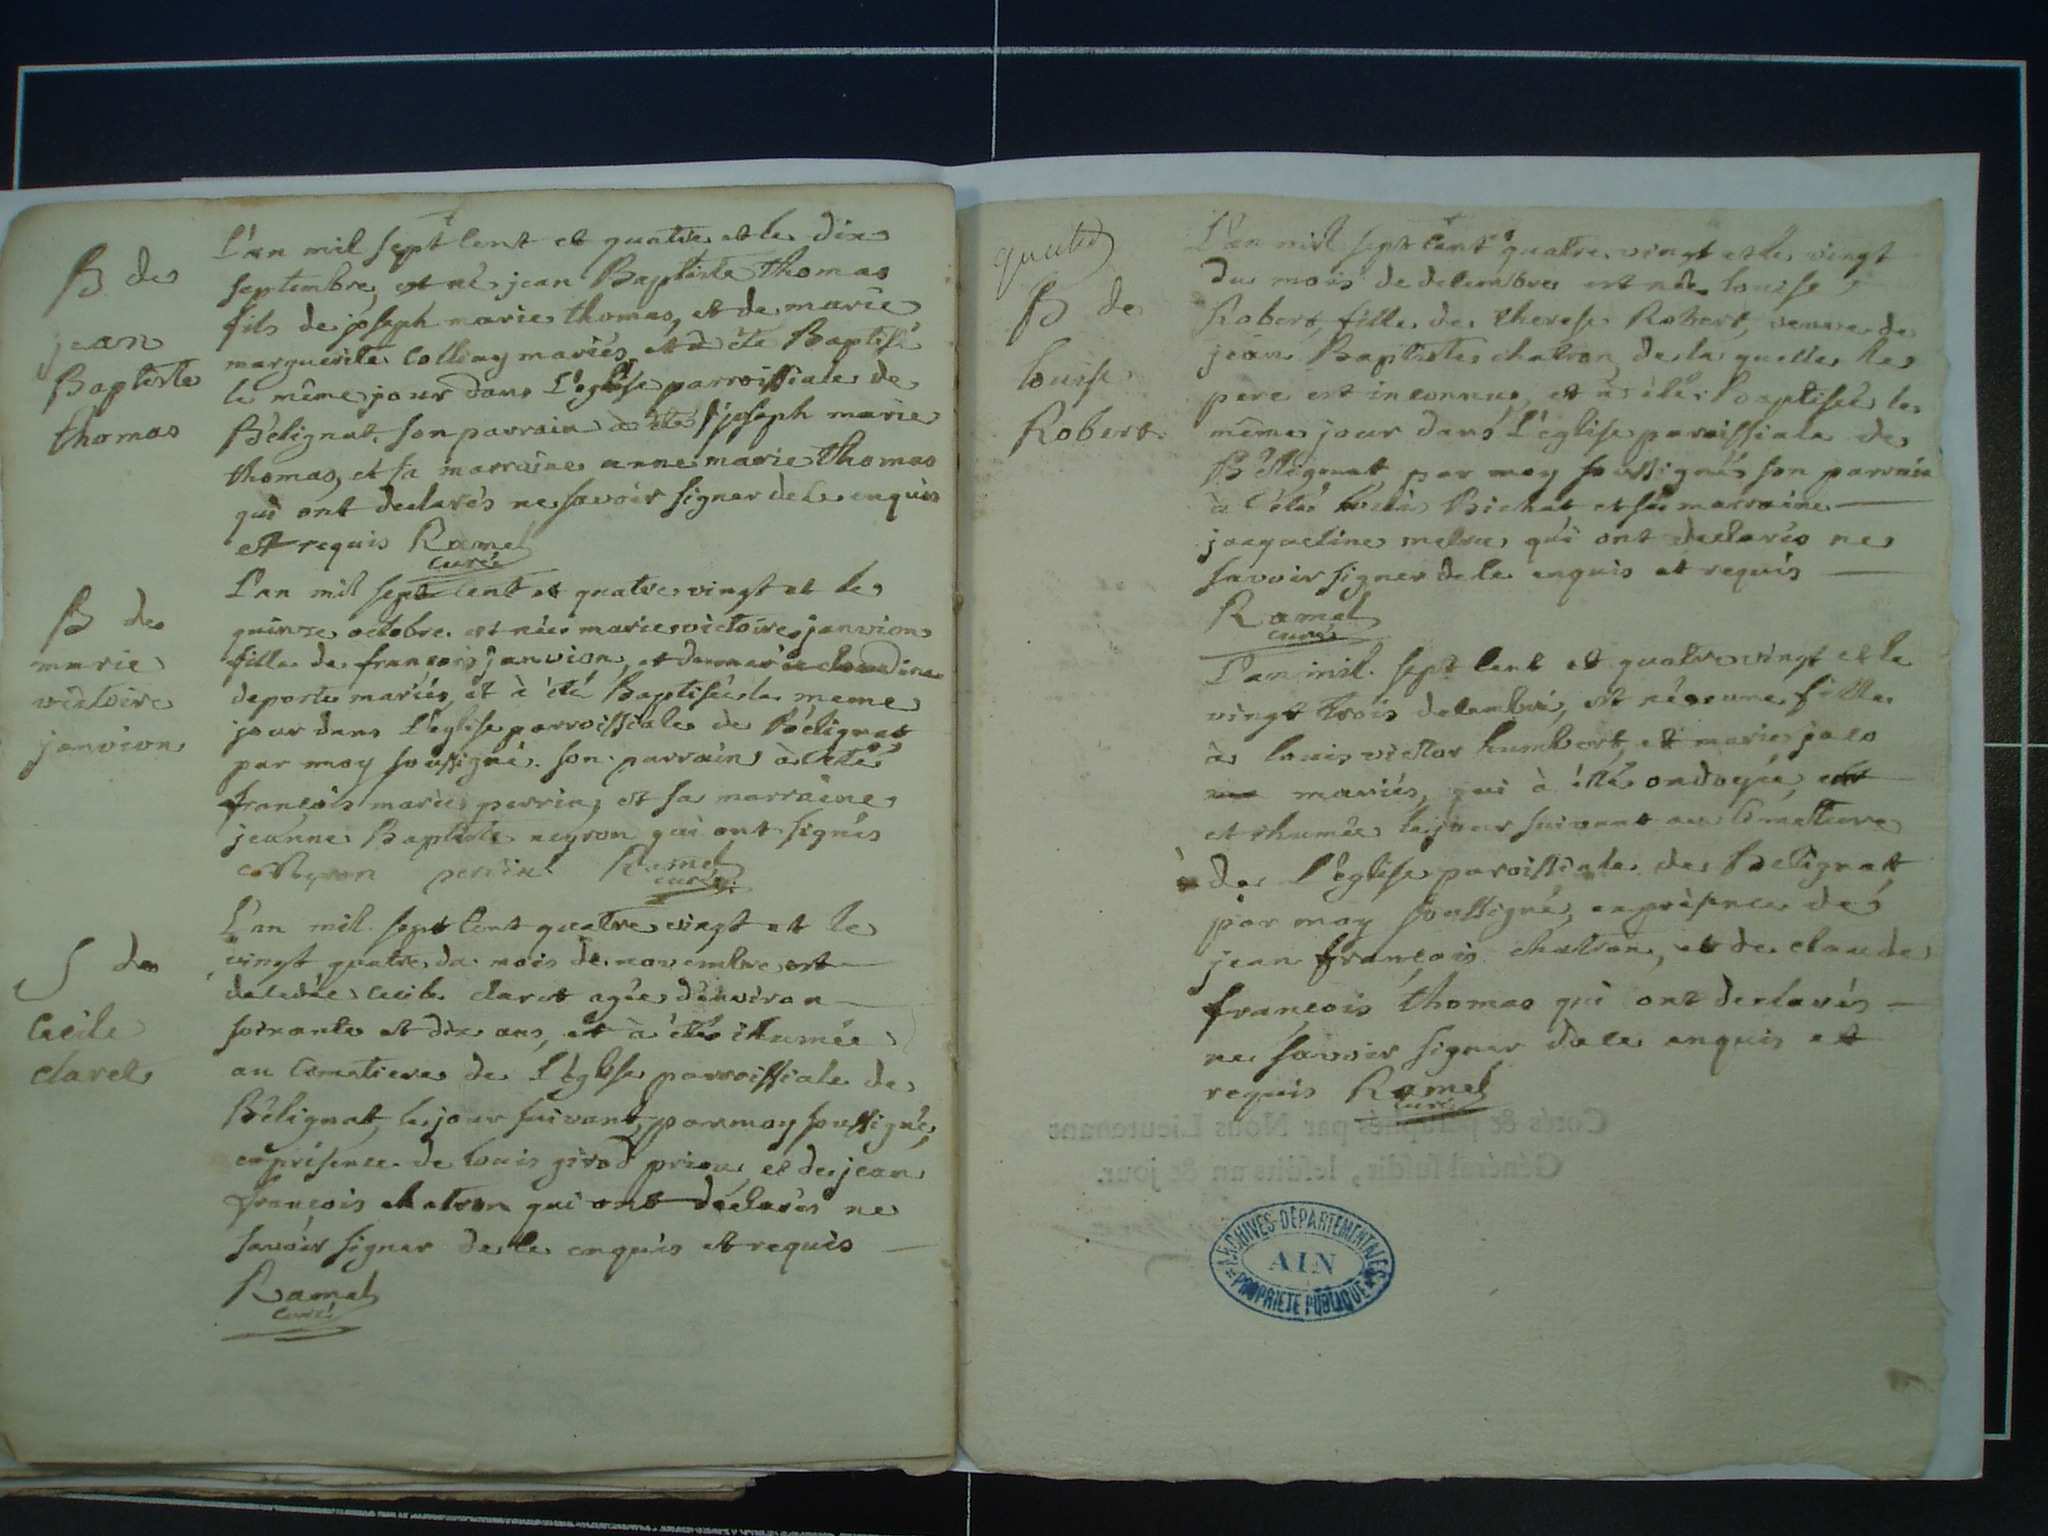 B de
jean
Baptiste
thomas
L'an mil sept cent et quatre et le dix
septembre, est né jean Baptiste thomas
fils de joseph marie thomas, et de marie
marguerite Collimy mariés, et à été Baptisé
le même jour dans L'eglise parroissiale de
Bélignat, son parrain à été joseph marie
thomas, et sa marraine anne marie thomas
qui ont declarés ne savoir signer de ce enquis
et requis Ramel
curé
B de
marie
victoire
janvion
L'an mil sept cent et quatre vingt et le
quinze octobre est née marie victoire janvion
fille de françois janvion, et de marie claudine
deporte mariés, et à été Baptisée le meme
jour dans L'église parroissiale de Bélignat
par moy soussigné. son parrain à été
françois marie perrin, et sa marraine
jeanne Baptiste neyron qui ont signés
neyron perrin Ramel
curé
S de
Cecile
claret
L'an mil sept cent quatre vingt et le
vingt quatre du mois de novembre est
decedée Cecile claret agée d'environ
soixante et dix ans, et à été ihumée
au Cimetiere de L'églse parroissiale de
Bélignat, le jour suivant, par moy soussigné,
en présence de louis girod prieu, et de jean
françois chatron qui ont déclarés ne
savoir signer de ce enquis et requis
Ramel
curé
B de
louise
Robert
L'an mil sept cent quatre vingt et le vingt
du mois de decembre est née louise
Robert, fille de therese Robert, veuve de
jean Baptiste chatron, de la quelle le
pere est inconnu, et à été baptisée le
même jour dans L'église paroissiale de
Bélignat par moy soussigné son parrain
à été Bichat et sa marraine
jacqueline qui ont declarés ne
savoir signer de ce enquis et requis
Ramel
curé
L'an mil sept cent et quatre vingt et le
vingt trois decembre, est née une fille
à louis victor humbert, et marie jalo
mariés, qui à été ondoyée, est
et ihumée le jour suivant au Cimetiere
de L'église paroissiale de Bélignat
par moy soussigné, en présence de
jean françois chatron, et de claude
françois thomas qui ont declarés
ne savoir signer de ce enquis et
requis Ramel
curé
Cotés & paraphés par Nous Lieutenant
Général susdit, lesdits an & jour.
ARCHIVES DÉPARTEMENTALES
AIN
PROPRIÉTÉ PUBLIQUE